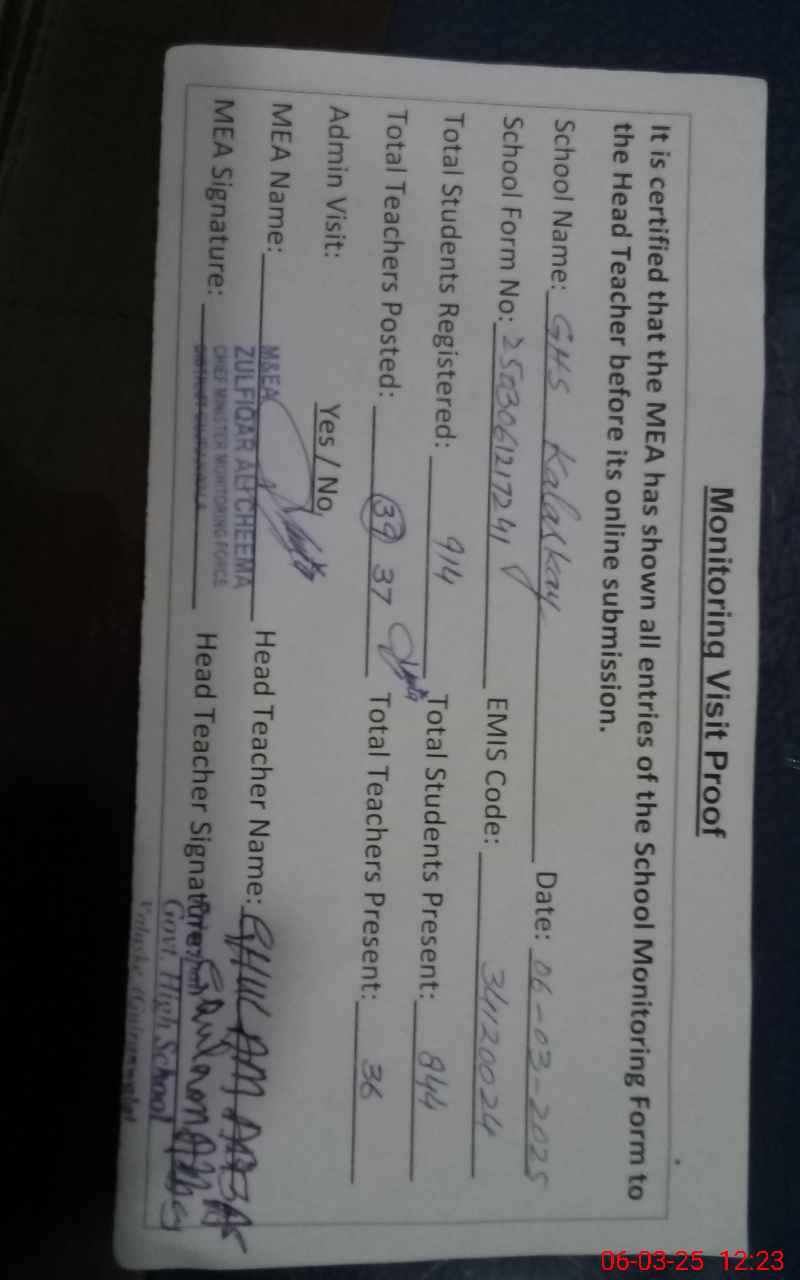 Monitoring Visit Proof
It is certified that the MEA has shown all entries of the School Monitoring Form to
the Head Teacher before its online submission.
School Name: GHS Kalaskay Date: 06-03-2025
School Form No: 2503061217241 EMIS Code: 34120024
Total Students Registered: 914 Total Students Present: 844
Total Teachers Posted: 39 37 Total Teachers Present: 36
Admin Visit: Yes / No
MEA Name: Head Teacher Name: GHULAM ABBAS
M&EA
ZULFIQAR ALI CHEEMA
CHIEF MINISTER MONITORING FORCE
DISTRICT GUJRANWALA
MEA Signature: Head Teacher Signature:
Govt. High School
06-03-25 12:23